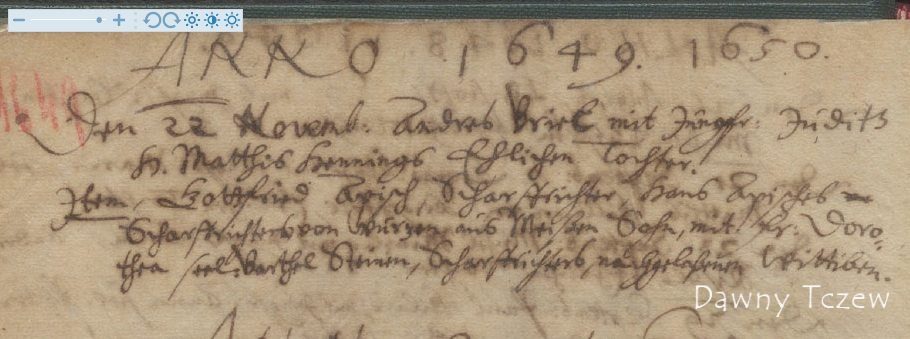 ANNO 1649. 1650.
Den 22 Novemb: Andres Briel mit Jungfr: Judith
H. Matthis Hennings Ehlichen Tochter.
Item, Gottfried Arisch, Scharfrichter, Hans Arisches
Scharfrichters von Wurzen aus Meißen Sohn, mit Fr: Doro-
thea seel: Barthel Steinen, Scharfrichters, nachgelaßenen Wittiben.
Dawny Tczew